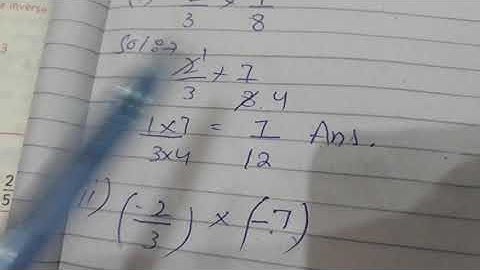 e inverse
3
2/5
2/3 × 7/8
Sol:→
2̸ 1/3 + 7/8̸ 4
1×7/3×4 = 7/12 Ans.
ii) (-2/3) × (-7)